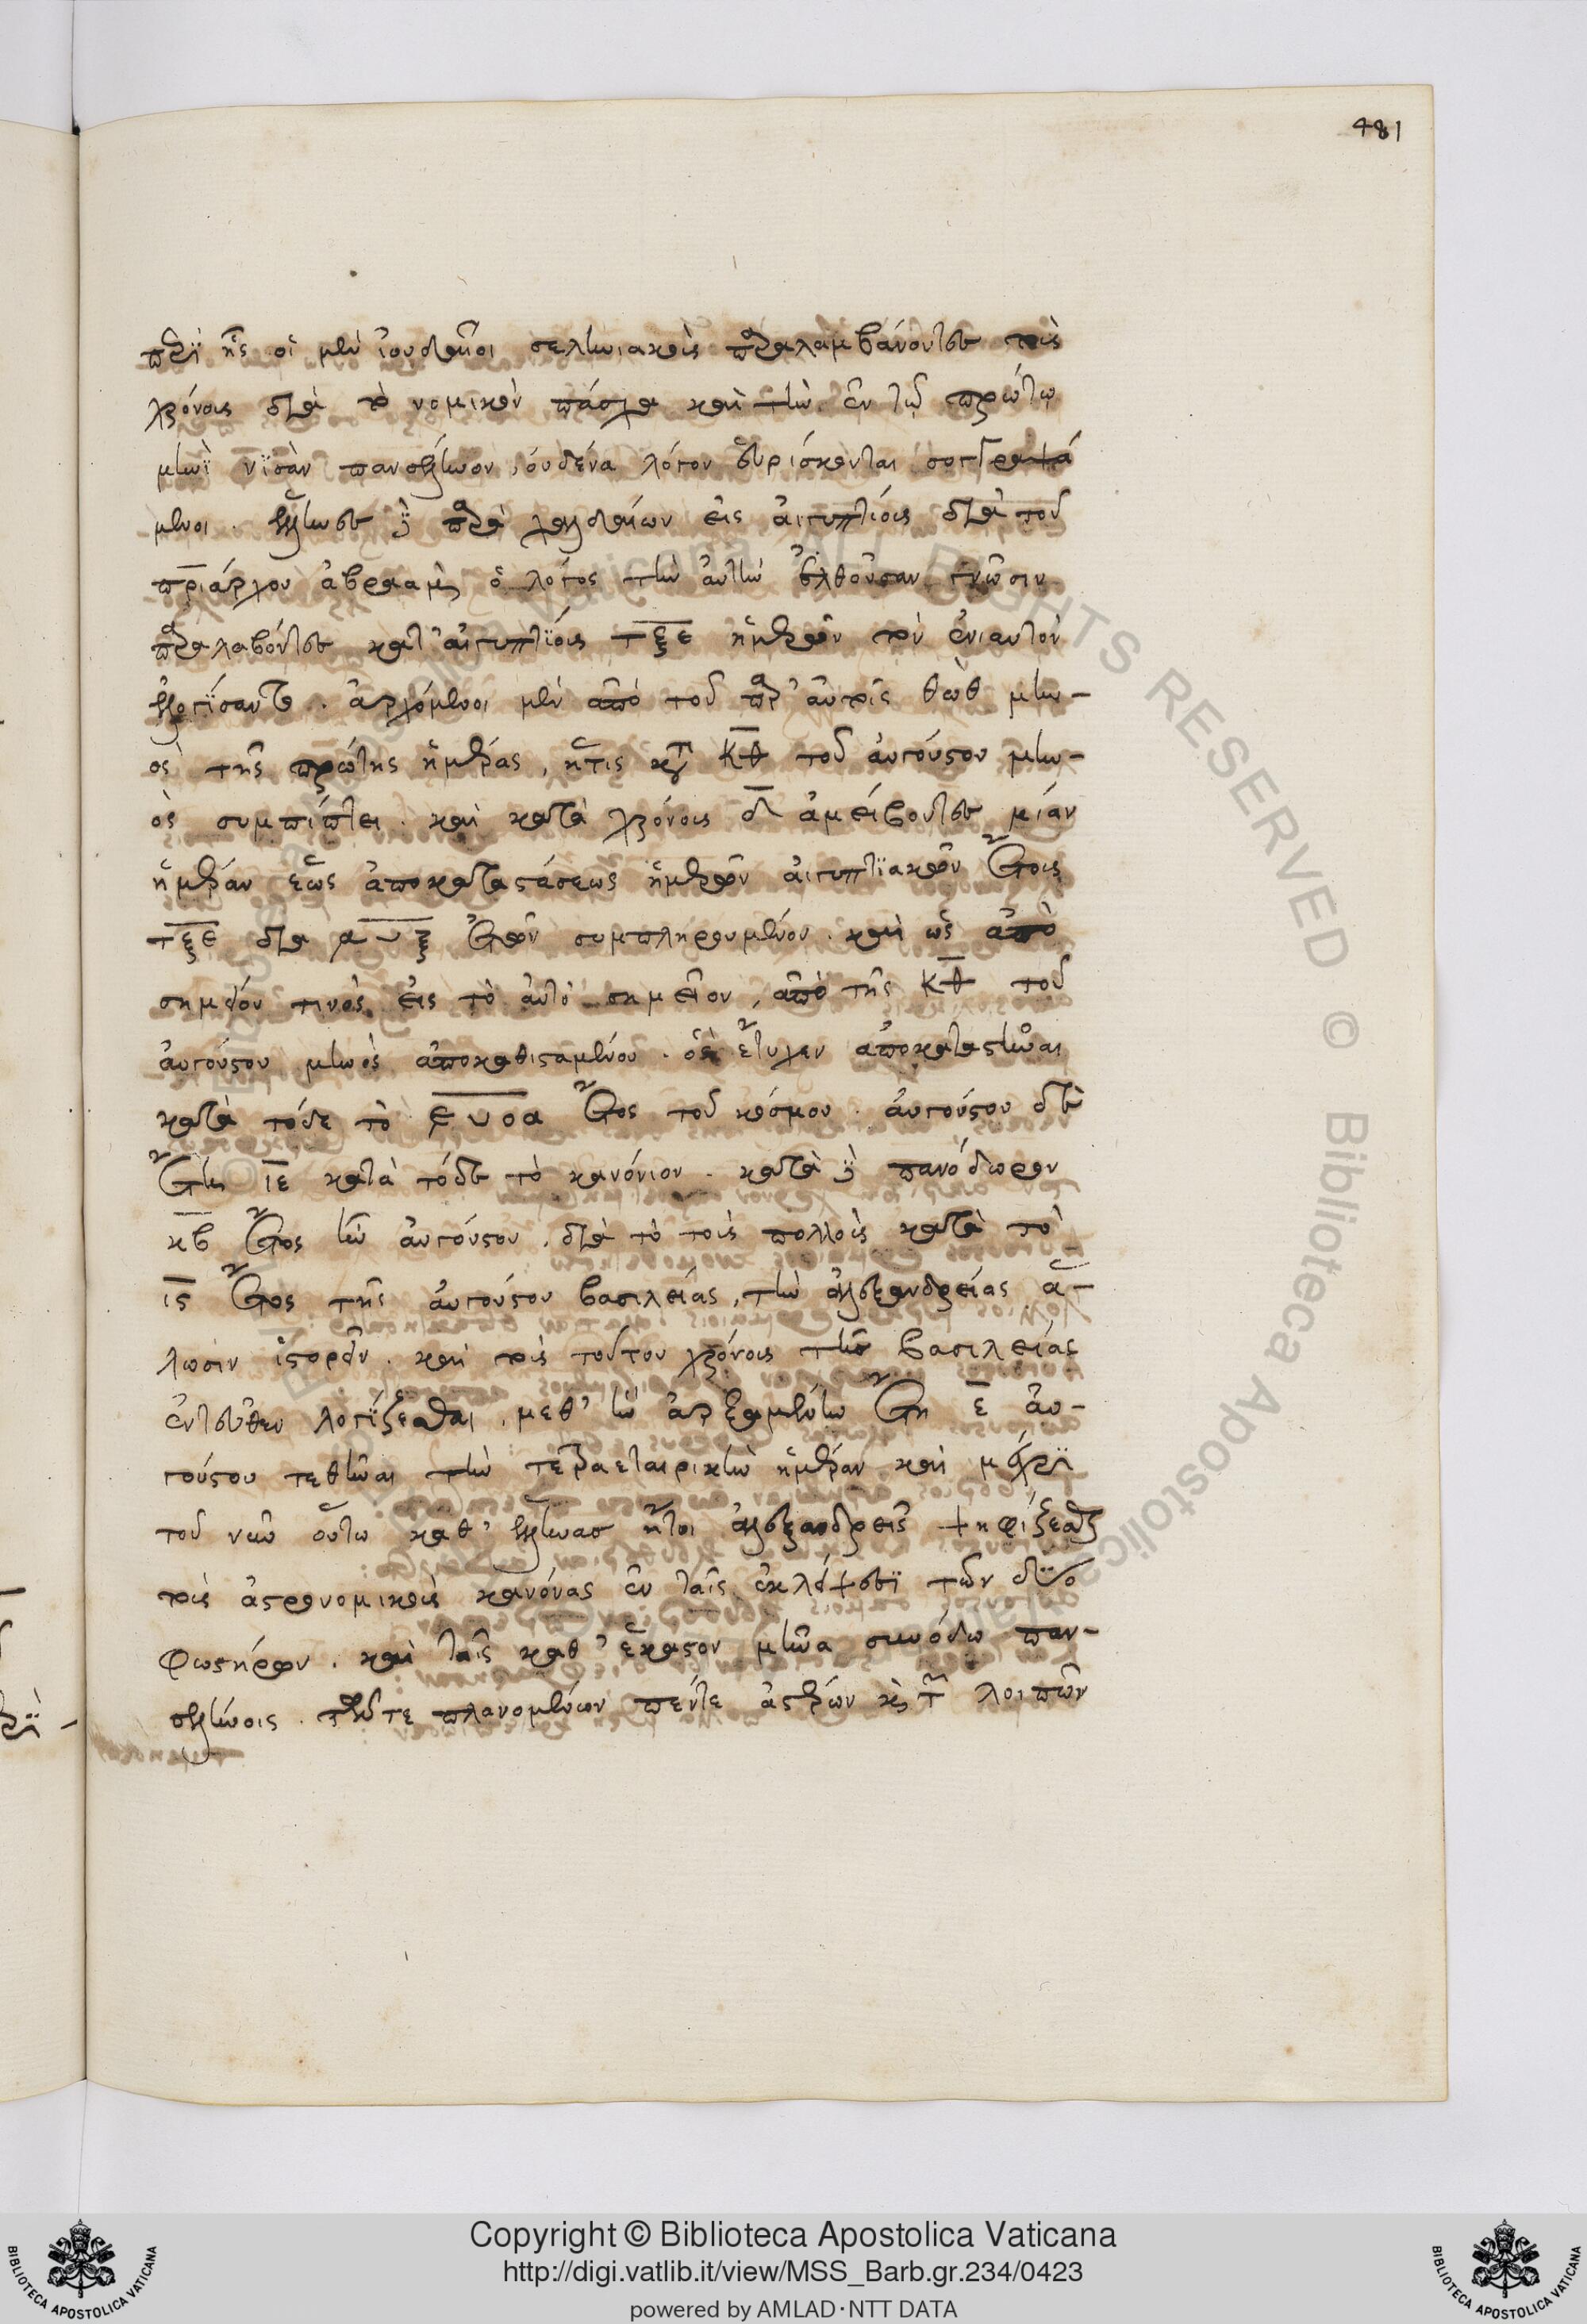 481
περὶ ἧς οἱ μὲν ἰουδαῖοι σεληνιακοὺς παραλαμβάνοντες τοὺς
χρόνους διὰ τὸ νομικὸν πάσχα καὶ τὴν ἐν τῷ πρώτῳ
μηνὶ νϊσὰν πανσέληνον, οὐδένα λόγον εὑρίσκονται
μενοι. ἕλληνες γὰρ παρὰ χαλδαίων εἰς αἰγυπτίους διὰ τοῦ
πριάρχου ἀβραὰμ, ὁ λόγος τὴν αὐτὴν ἐλθοῦσαν γνῶσιν
παραλαβόντες κατ' αἰγυπτίους τξε ἡμερῶν τὸν ἐνιαυτὸν
ἐλογίσαντο. ἀρχόμενοι μὲν ἀπὸ τοῦ παρ' αὐτοῖς θὼθ μην-
ὸς τῆς πρώτης ἡμέρας, ἥτις κατὰ κθ τοῦ αὐγούστου μην-
ὸς συμπίπτει. καὶ κατὰ χρόνους δ ἀμείβοντες μίαν
ἡμέραν ἕως ἀποκαταστάσεως ἡμερῶν αἰγυπτϊακῶν ἔτους
τξε διὰ αυξ ἐτῶν συμπληρουμένου. καὶ ὡς ἀπὸ
σημείου τινὸς εἰς τὸ αὐτὸ σημεῖον, ἀπὸ τῆς κθ τοῦ
αὐγούστου μηνὸς ἀποκαθισταμένου. ὃ ἔτυχεν ἀποκαταστῆναι
κατὰ τόδε τὸ ευοα ἔτος τοῦ κόσμου. αὐγούστου δὲ
ἔτη ιε κατὰ τόδε τὸ κανόνιον. κατὰ γὰρ πανόδωρον
κβ ἔτος ἦν αὐγούστου. διὰ τὸ τοὺς πολλοὺς κατὰ τὸ
ις ἔτος τῆς αὐγούστου βασιλείας, τὴν ἀλεξανδρείας ἅ-
λωσιν ἱστορεῖν. καὶ τοὺς τούτου χρόνους τῆς βασιλείας
ἐντεῦθεν λογίζεσθαι, μεθ' ἣν ἀρξαμένην ἔτη ε αὐ-
γούστου τεθῆναι τὴν τετραεταιρικὴν ἡμέραν καὶ μέχρι
τοῦ νῦν οὕτω καθ' ἕλληνας ἤτοι ἀλεξανδρεῖς ψηφίζεσθαι
τοὺς ἀστρονομικοὺς κανόνας ἐν ταῖς ἐκλείψεσϊ τῶν δύο
φωστήρων. καὶ ταῖς καθ' ἕκαστον μῆνα συνόδω παν-
σελήνοις. τῶν τε πλανομένων πέντε ἀστέρων καὶ τῶν λοιπῶν
Copyright © Biblioteca Apostolica Vaticana
http://digi.vatlib.it/view/MSS_Barb.gr.234/0423
powered by AMLAD·NTT DATA